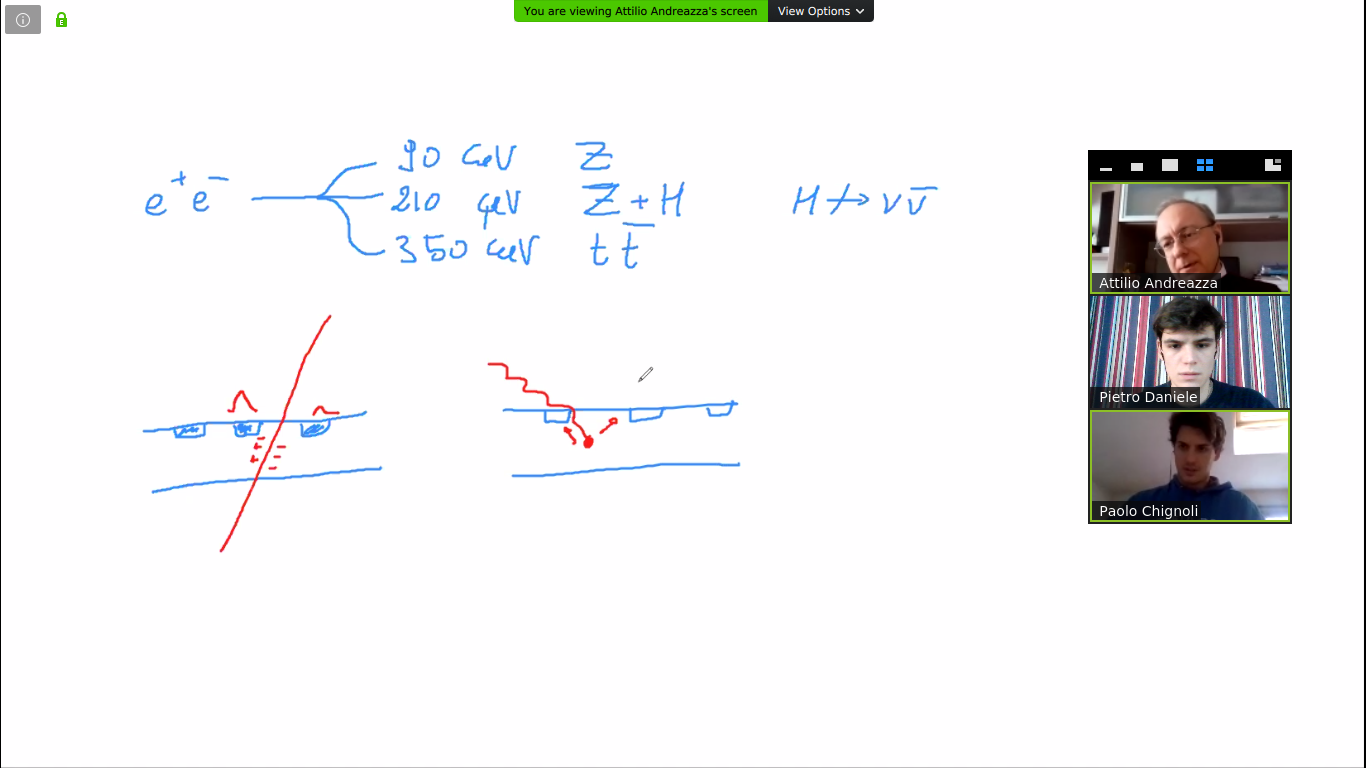 You are viewing Attilio Andreazza's screen
View Options
90 GeV Z
e⁺ e⁻ 210 GeV Z + H H ↛ ν ν̅
350 GeV t t̅
Attilio Andreazza
Pietro Daniele
Paolo Chignoli